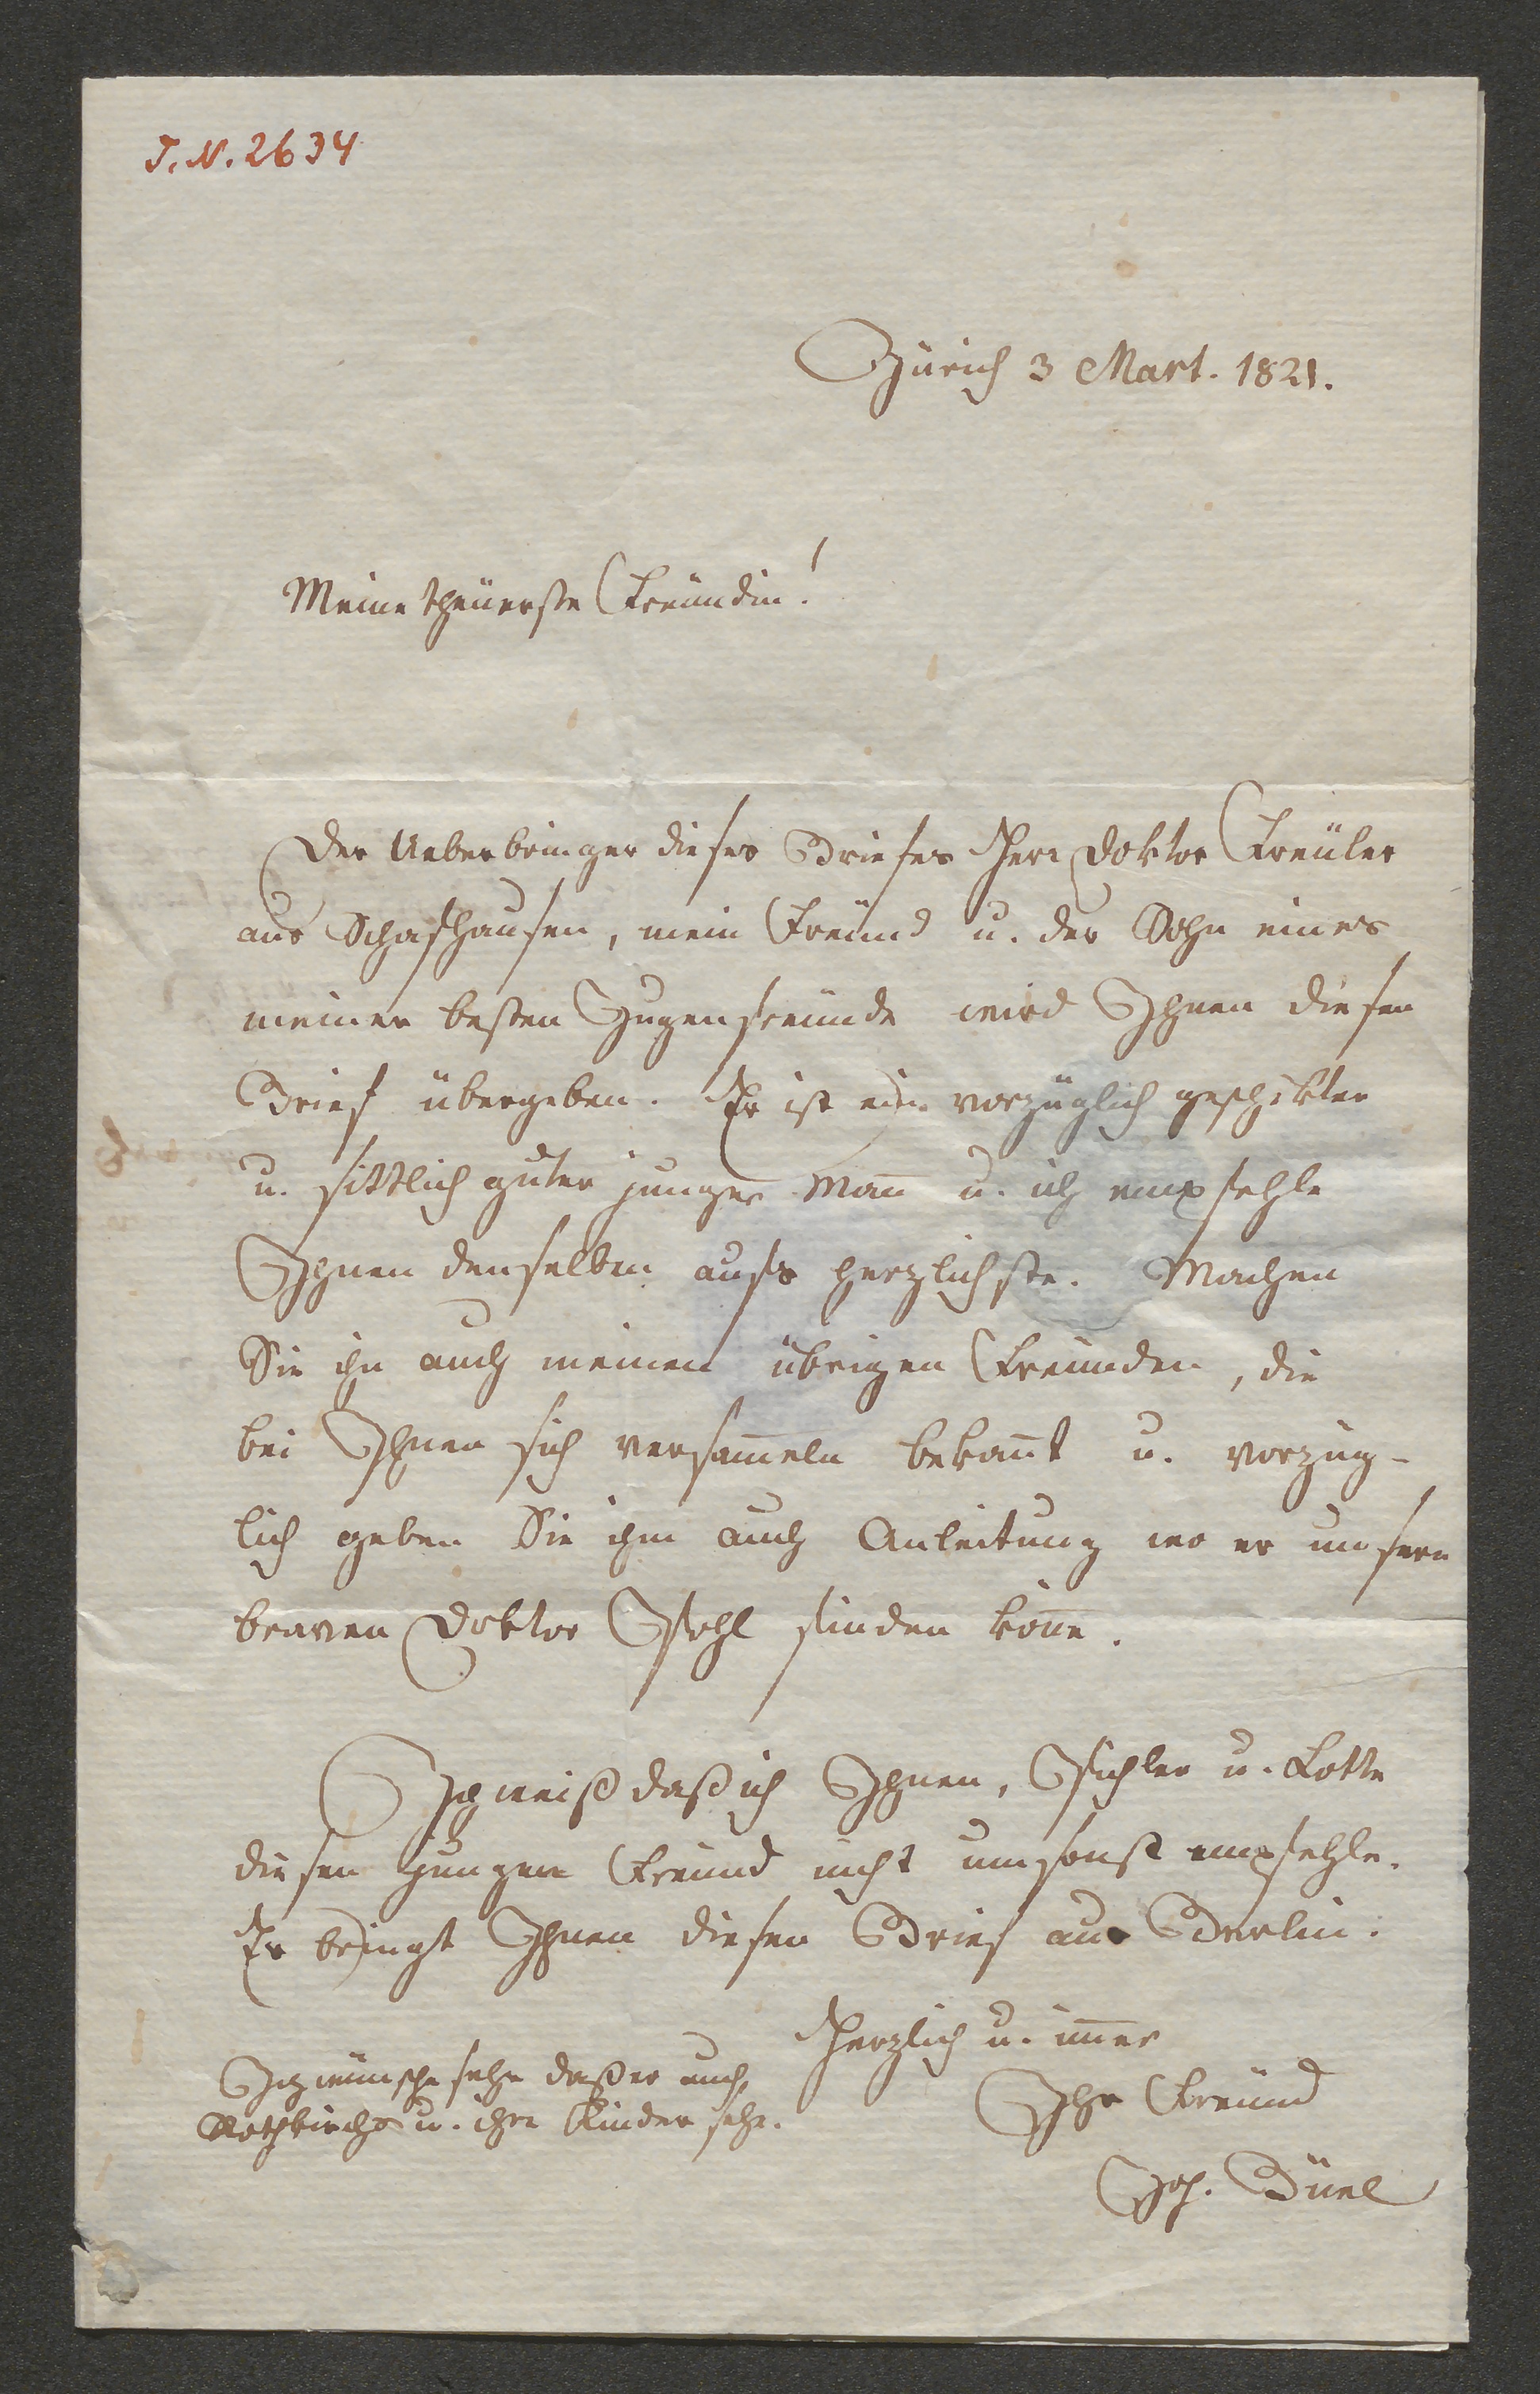 I. N. 2634
Zürich 3 Mart. 1821.
Meine theüerste Freündin!
Der Ueberbringer dieses Briefes Herr Doktor Freüler
aus Schafhausen, mein Freünd u. der Sohn eines
meiner besten Jugenfreünde wird Ihnen diesen
Brief übergeben. Er ist ein vorzüglich geschikter
u. sittlich guter junger Mañ u. ich empfehle
Ihnen denselben aufs herzlichste. Machen
Sie ihn auch meinen übrigen Freünden, die
bei Ihnen sich versam̄eln bekañt u. vorzüg-
lich geben Sie ihm auch Anleitung wo er unsern
braven Doktor Ischl finden köñe.
Ich weiß daß ich Ihnen, Pichler u. Lotte
diesen jungen Freünd nicht umsonst empfehle.
Er bringt Ihnen diesen Brief aus Berlin.
Herzlich u. im̄er
Ihr Freünd
Joh. Büel
Ich wünsche sehr daß er auch
Rothkirchs u. ihre Kinder sehe.